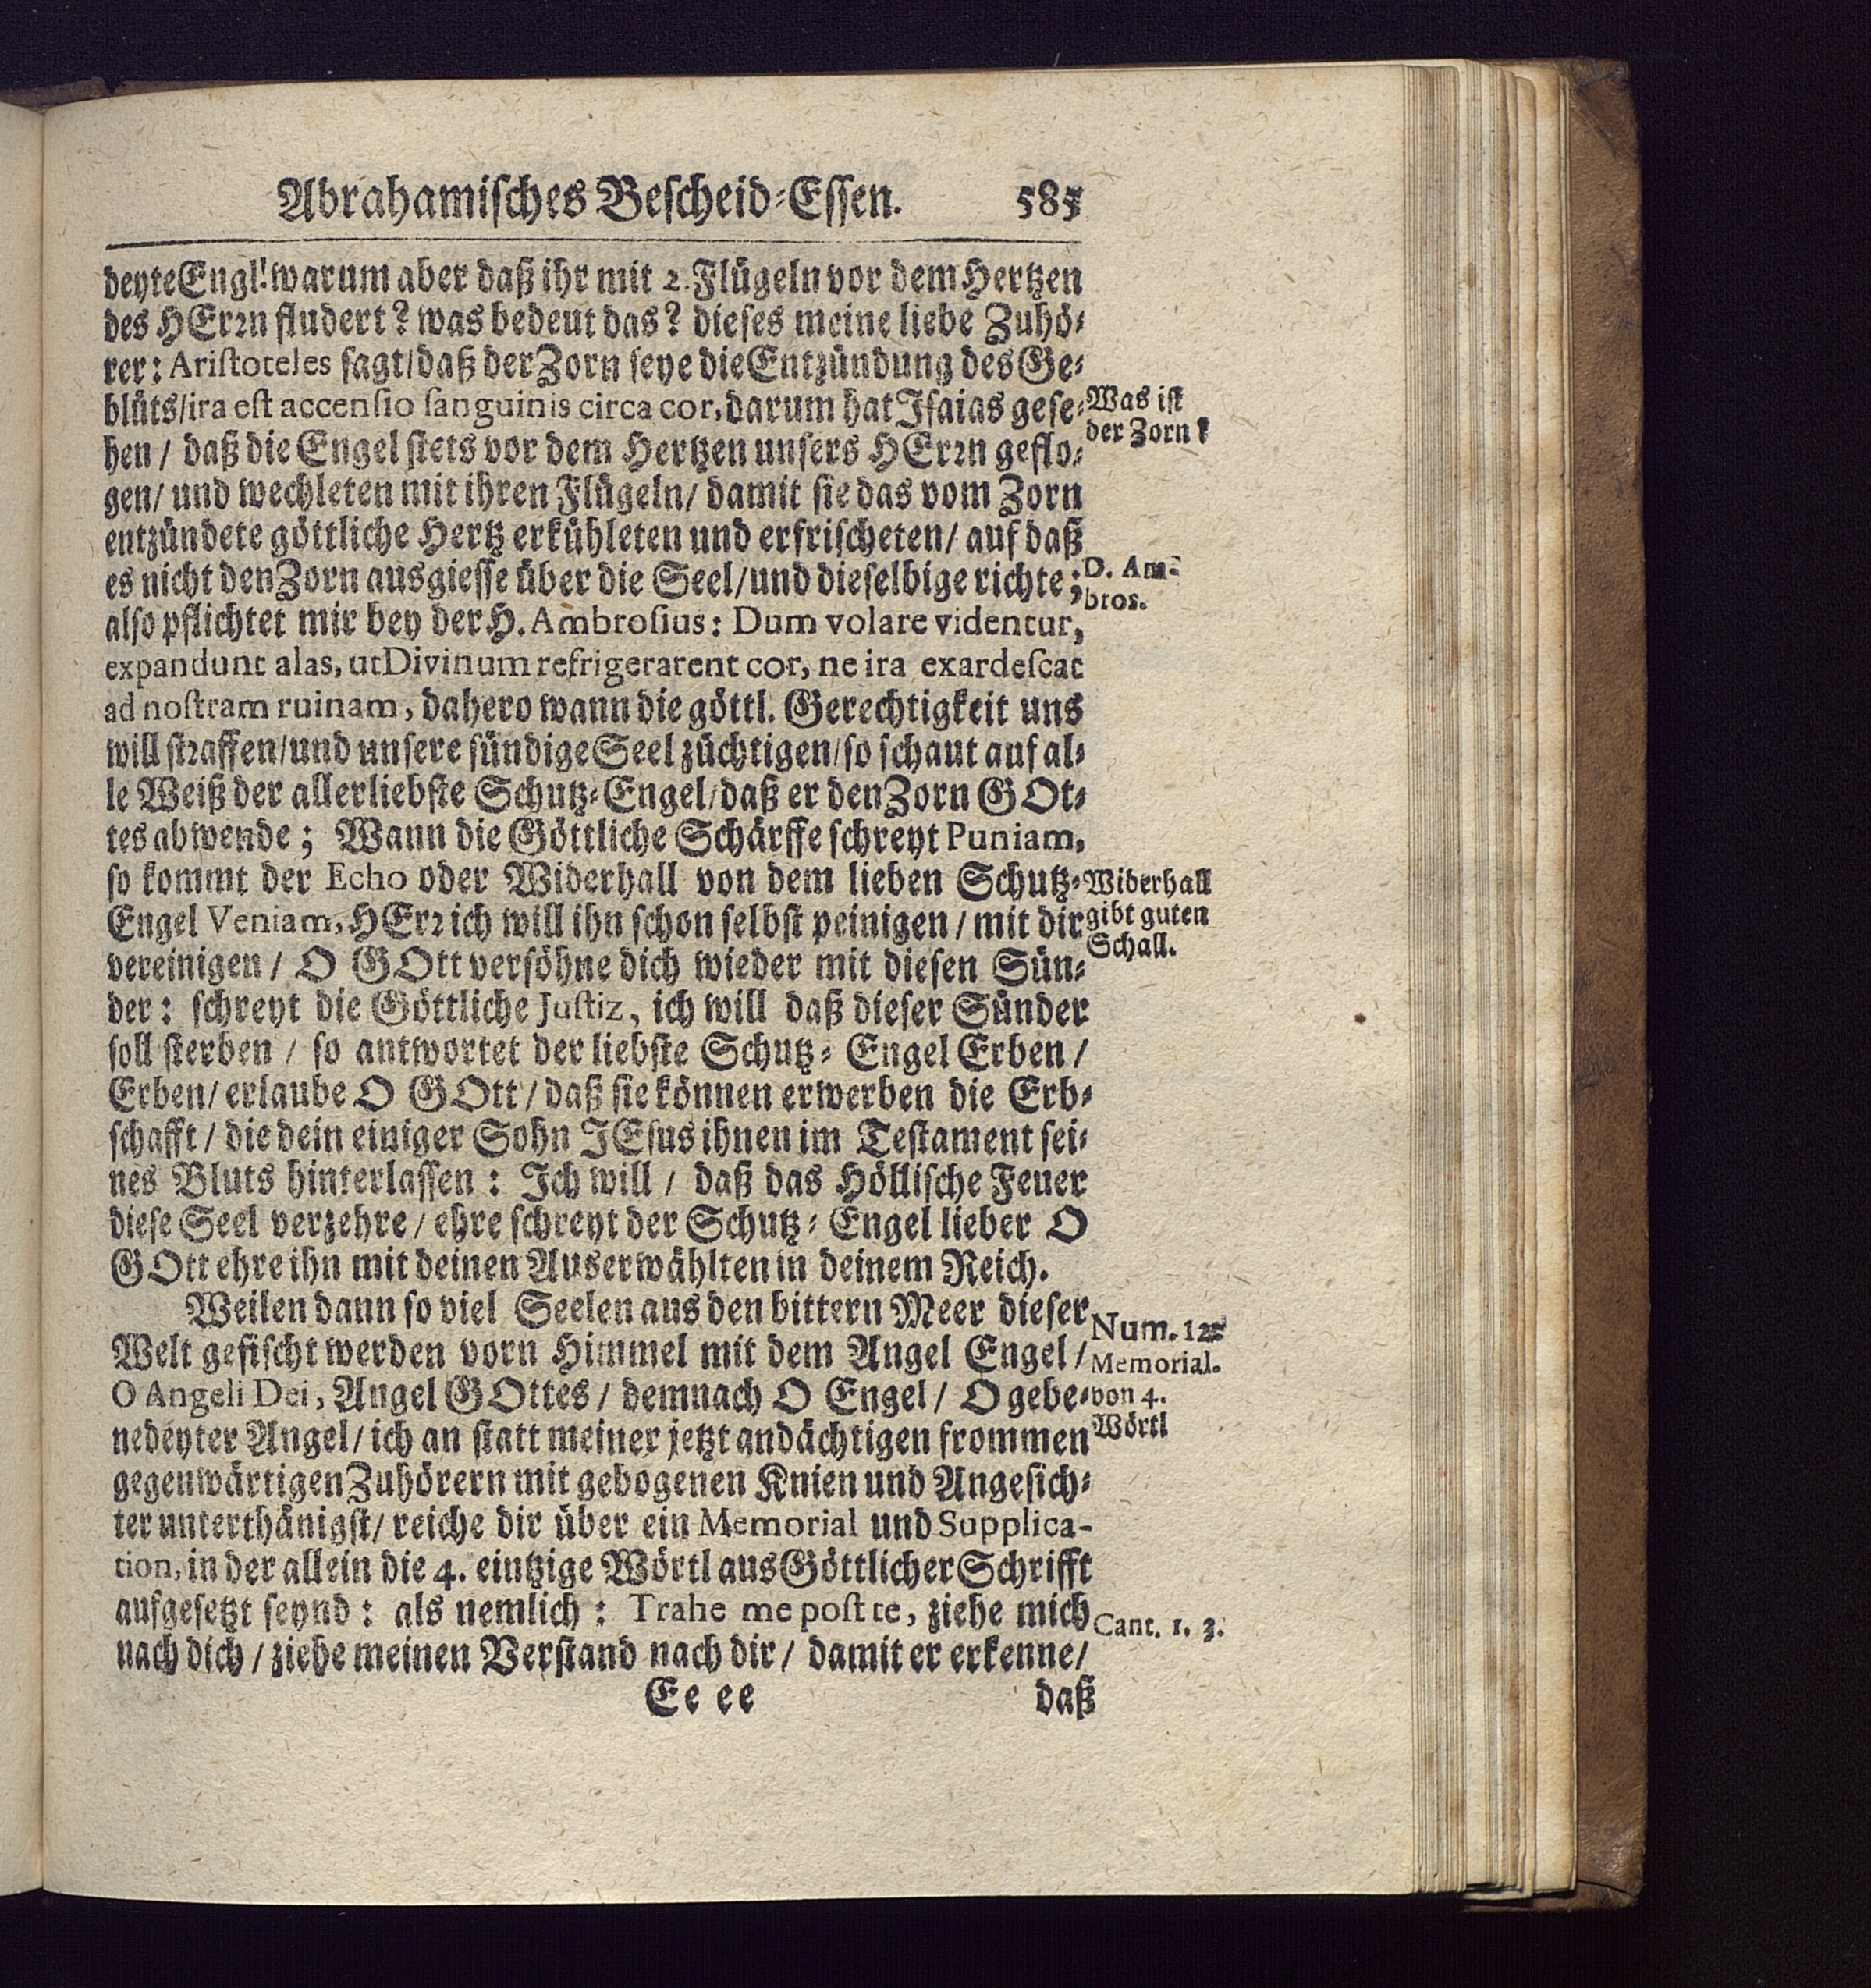 Abrahamisches Bescheid-Essen. 585
deyte Engl! warum aber daß ihr mit 2. Flügeln vor dem Hertzen
des HErrn fludert? was bedeut das? dieses meine liebe Zuhö-
rer: Aristoteles sagt/ daß der Zorn seye die Entzündung des Ge-
blüts/ ira est accensio sanguinis circa cor, darum hat Isaias gese-
Was ist
der Zorn?
hen / daß die Engel stets vor dem Hertzen unsers HErrn geflo-
gen/ und wechleten mit ihren Flügeln/ damit sie das vom Zorn
entzündete göttliche Hertz erkühleten und erfrischeten/ auf daß
es nicht den Zorn ausgiesse über die Seel/ und dieselbige richte;
D. Am-
bros.
also pflichtet mir bey der H. Ambrosius: Dum volare videntur,
expandunt alas, ut Divinum refrigerarent cor, ne ira exardescat
ad nostram ruinam, dahero wann die göttl. Gerechtigkeit uns
will straffen/ und unsere sündige Seel züchtigen/ so schaut auf al-
le Weiß der allerliebste Schutz-Engel/ daß er den Zorn GOt-
tes abwende; Wann die Göttliche Schärffe schreyt Puniam,
so kommt der Echo oder Widerhall von dem lieben Schutz-
Widerhall
gibt guten
Schall.
Engel Veniam, HErr ich will ihn schon selbst peinigen / mit dir
vereinigen / O GOtt versöhne dich wieder mit diesen Sün-
der: schreyt die Göttliche Justiz, ich will daß dieser Sünder
soll sterben / so antwortet der liebste Schutz-Engel Erben /
Erben/ erlaube O GOtt/ daß sie können erwerben die Erb-
schafft / die dein einiger Sohn JEsus ihnen im Testament sei-
nes Bluts hinterlassen: Ich will / daß das Höllische Feuer
diese Seel verzehre / ehre schreyt der Schutz-Engel lieber O
GOtt ehre ihn mit deinen Auserwählten in deinem Reich.
Weilen dann so viel Seelen aus den bittern Meer dieser
Num. 12.
Memorial.
von 4.
Wörtl
Welt gefischt werden vorn Himmel mit dem Angel Engel /
O Angeli Dei, Angel GOttes / demnach O Engel / O gebe-
nedeyter Angel/ ich an statt meiner jetzt andächtigen frommen
gegenwärtigen Zuhörern mit gebogenen Knien und Angesich-
ter unterthänigst/ reiche dir über ein Memorial und Supplica-
tion, in der allein die 4. eintzige Wörtl aus Göttlicher Schrifft
aufgesetzt seynd: als nemlich: Trahe me post te, ziehe mich
Cant. 1. 3.
nach dich / ziehe meinen Verstand nach dir / damit er erkenne/
Ee ee daß